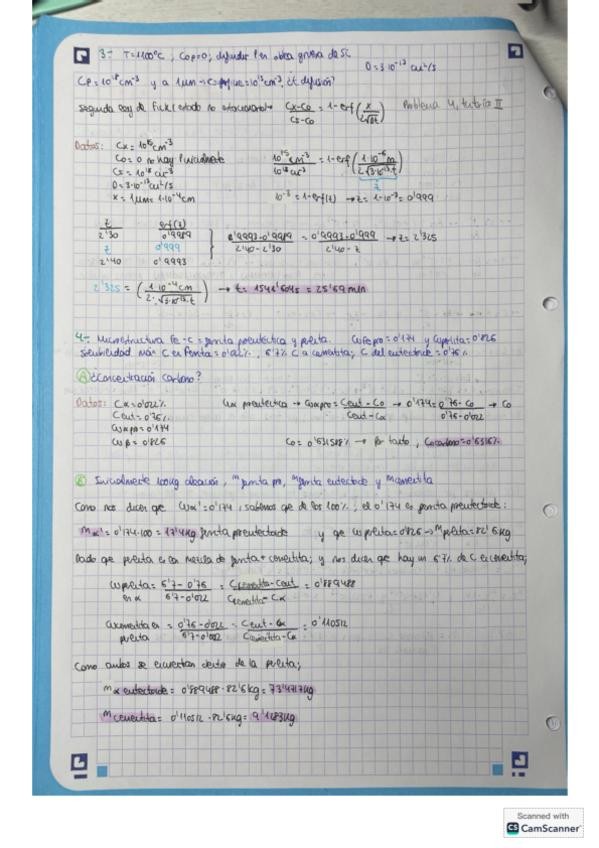 3- T=1100°C, C₀P=0, difundir P en oblea gruesa de Si D=3·10⁻¹³ cm²/s
Cp=10¹⁸cm⁻³ y a 1μm → que=10¹⁵cm⁻³, ¿t difusión?
segunda ley de Fick (estado no estacionario) → Cx-Co/Cs-Co = 1-erf(x/2√Dt) Problema 4, tutoría II
Datos: Cx=10¹⁵cm⁻³
Co=0 no hay P inicialmente 10¹⁵cm⁻³/10¹⁸cm⁻³ = 1-erf(1·10⁻⁶m/2√3·10⁻¹³·t)
Cs=10¹⁸cm⁻³ z
D=3·10⁻¹³cm²/s
x=1μm=1·10⁻⁴cm 10⁻³=1-erf(z) → z=1-10⁻³=0'999
z erf(z)
2'30 0'9989 0'9993-0'9989/2'40-2'30 = 0'9993-0'999/2'40-z → z=2'325
z 0'999
2'40 0'9993
2'325 = (1·10⁻⁴cm/2·√3·10⁻¹³·t) → t=1541'604s=25'69min
4- Microestructura Fe-C = ferrita proeutéctica y perlita. ωFe pro=0'174 y ωperlita=0'826
solubilidad máx C en ferrita=0'022%, 6'7% C a cementita; C del eutectoide=0'76%
A ¿Concentración carbono?
Datos: Cα=0'022% ωα proeutéctica → ωαpro = Ceut-Co/Ceut-Cα → 0'174=0'76-Co/0'76-0'022 → Co
Ceut=0'76%
ωαpro=0'174
ωβ=0'826 Co=0'631588% → Por tanto, Cocarbono=0'6316%
B Inicialmente 100kg aleación, mferrita pro, mferrita eutectoide y mcementita
Como nos dicen que ωα'=0'174; sabemos que de los 100%, el 0'174 es ferrita proeutectoide:
mα'=0'174·100=17'4kg ferrita proeutectoide y que ωperlita=0'826 → mperlita=82'6kg
Dado que perlita es la mezcla de ferrita+cementita; y nos dicen que hay un 6'7% de C en cementita;
ωperlita=6'7-0'76/6'7-0'022 = Ccementita-Ceut/Ccementita-Cα = 0'889488
en α
ωcementita en=0'76-0'022/6'7-0'022 = Ceut-Cα/Ccementita-Cα = 0'110512
perlita
Como ambos se encuentran dentro de la perlita;
mα eutectoide=0'889488·82'6kg=73'4717kg
mcementita=0'110512·82'6kg=9'1283kg
Scanned with
CS CamScanner